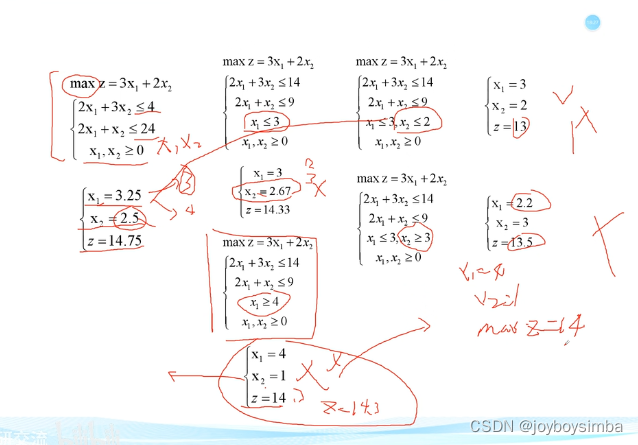 max z = 3x₁ + 2x₂
2x₁ + 3x₂ ≤ 4
2x₁ + x₂ ≤ 24
x₁, x₂ ≥ 0
x₁, x₂
x₁ = 3.25
x₂ = 2.5
z = 14.75
3
4
max z = 3x₁ + 2x₂
2x₁ + 3x₂ ≤ 14
2x₁ + x₂ ≤ 9
x₁ ≤ 3
x₁, x₂ ≥ 0
x₁ = 3
x₂ = 2.67
z = 14.33
2
3
max z = 3x₁ + 2x₂
2x₁ + 3x₂ ≤ 14
2x₁ + x₂ ≤ 9
x₁ ≤ 3, x₂ ≤ 2
x₁, x₂ ≥ 0
x₁ = 3
x₂ = 2
z = 13
max z = 3x₁ + 2x₂
2x₁ + 3x₂ ≤ 14
2x₁ + x₂ ≤ 9
x₁ ≤ 3, x₂ ≥ 3
x₁, x₂ ≥ 0
x₁ = 2.2
x₂ = 3
z = 13.5
max z = 3x₁ + 2x₂
2x₁ + 3x₂ ≤ 14
2x₁ + x₂ ≤ 9
x₁ ≥ 4
x₁, x₂ ≥ 0
x₁ = 4
x₂ = 1
z = 14
z=14.3
x₁=4
max z=14
CSDN @joyboysimba